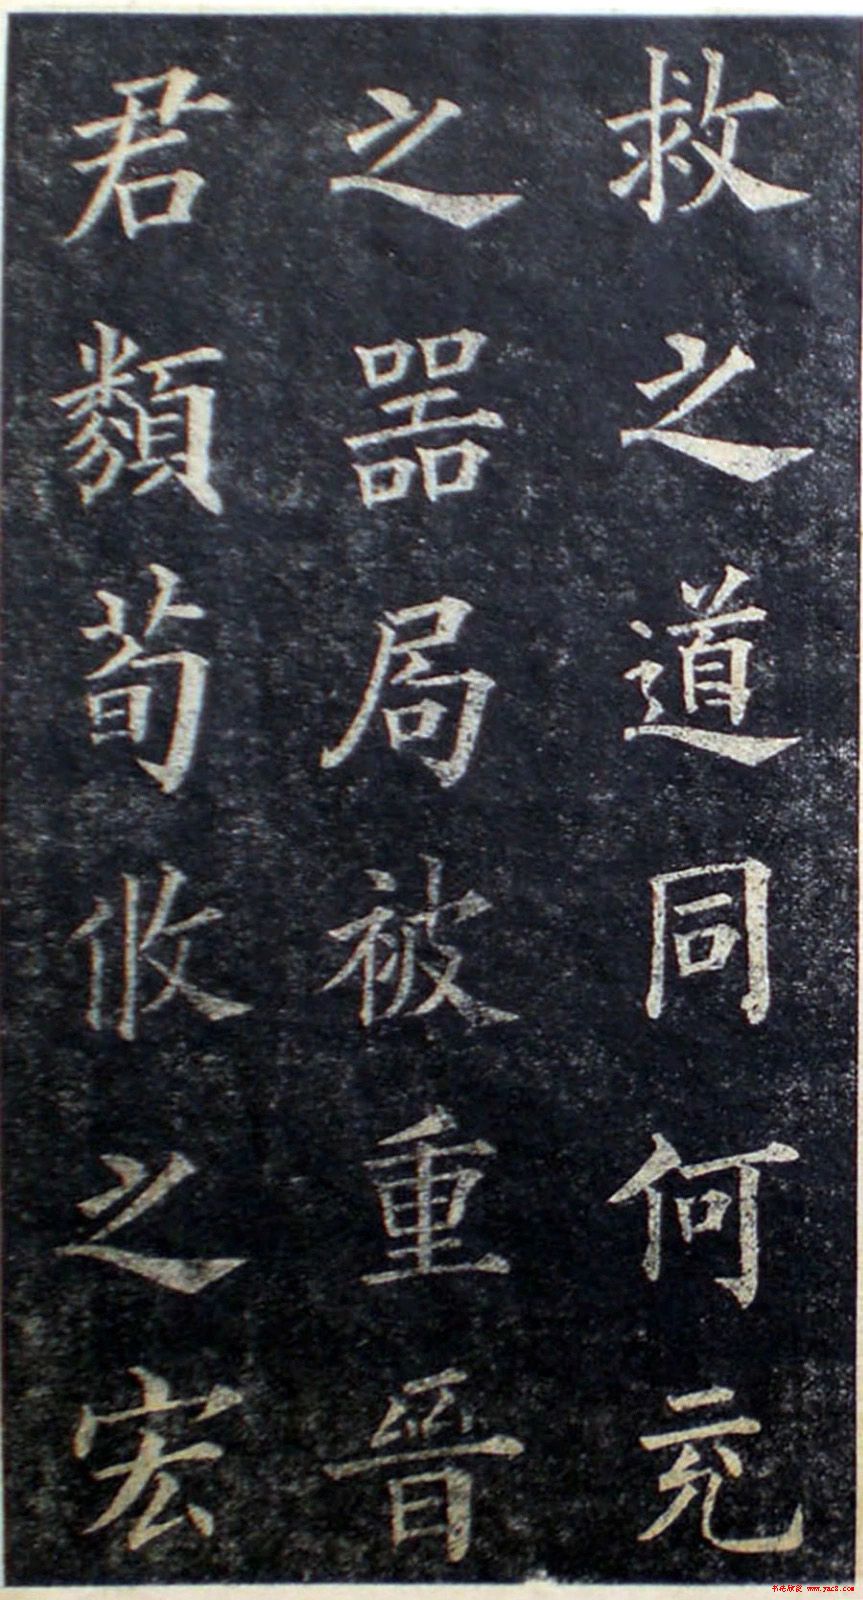 救之道同何充
之器局被重晉
君類荀攸之宏
书法欣赏 www.yac8.com